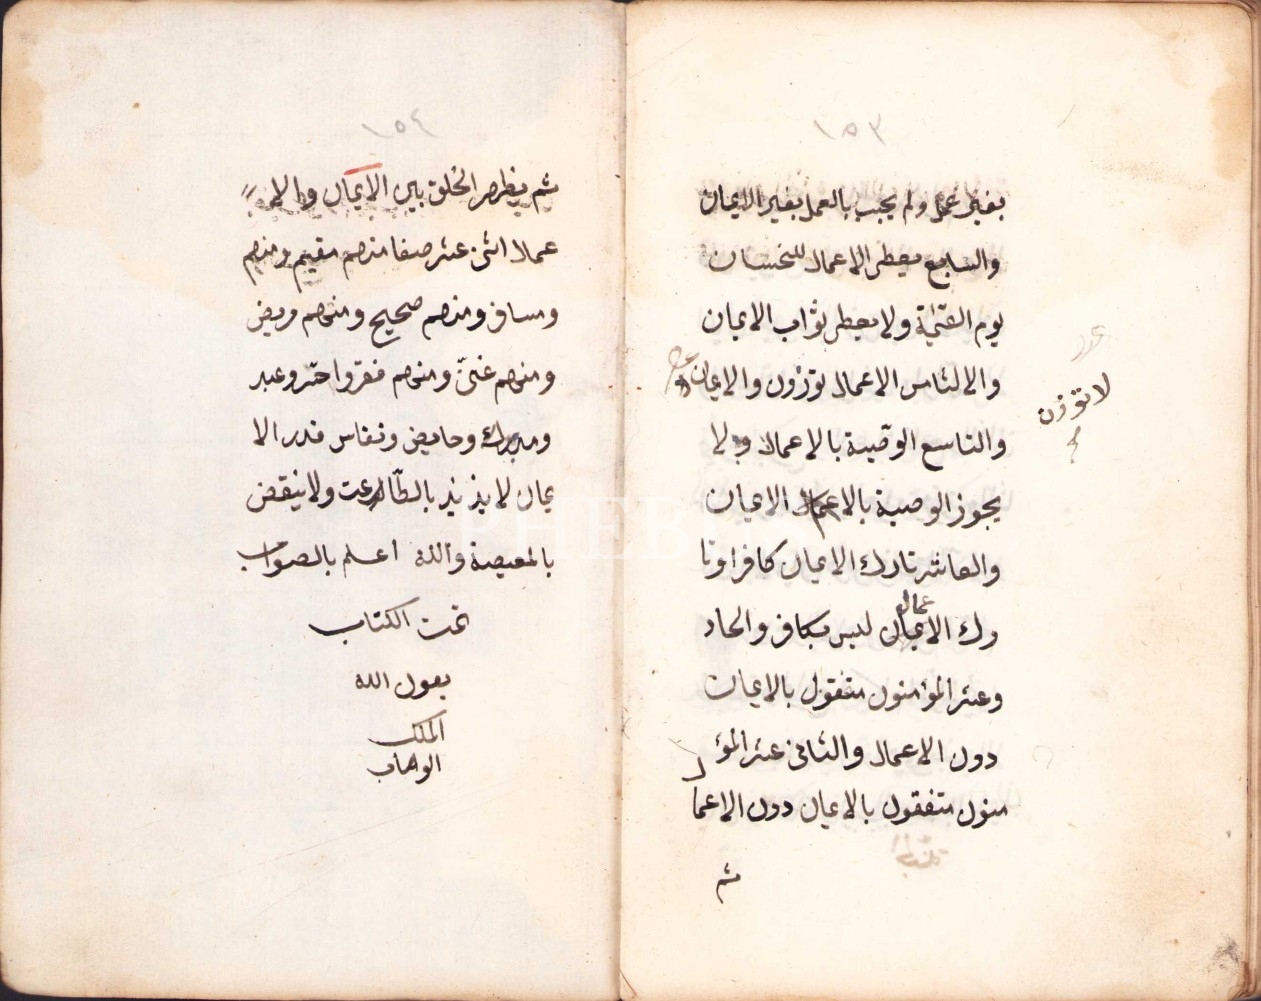 ١٥٣
بغير عمل ولم يجب بالعمل بغير الايمان
والسابع يعطى الاعمال للخسان
يوم القيمة ولا يعطى ثواب الايمان
والا لثامن الاعمال توزون والايمان
لا توزن
والتاسع الوصية بالاعمال ولا
يجوز الوصية بالا الايمان
والعاشر تارك الايمان كافرا وتا
عمال
رك الايمان ليس بكافر والحاد
وعشر المؤمنون متفقول بالايمان
دون الاعمال والثانى عشر المؤ
منون متفقون بالايمان دون الاعما
ل
ثم
١٥٤
ثم ينظر الخلق بين الايمان والا
عمالا اثنى عشر صفا منهم مقيم ومنهم
ومسافر ومنهم صحيح ومنهم مريض
ومنهم غنىّ ومنهم فقر واحرّ وعبد
ومدبرك وحايض ونفاس قدر الا
يمان لا يذيذ بالطّاعت ولا ينقض
بالمعيصة والله اعلم بالصواب
تمت الكتاب
بعون الله
الملك
الوهاب
PHEB